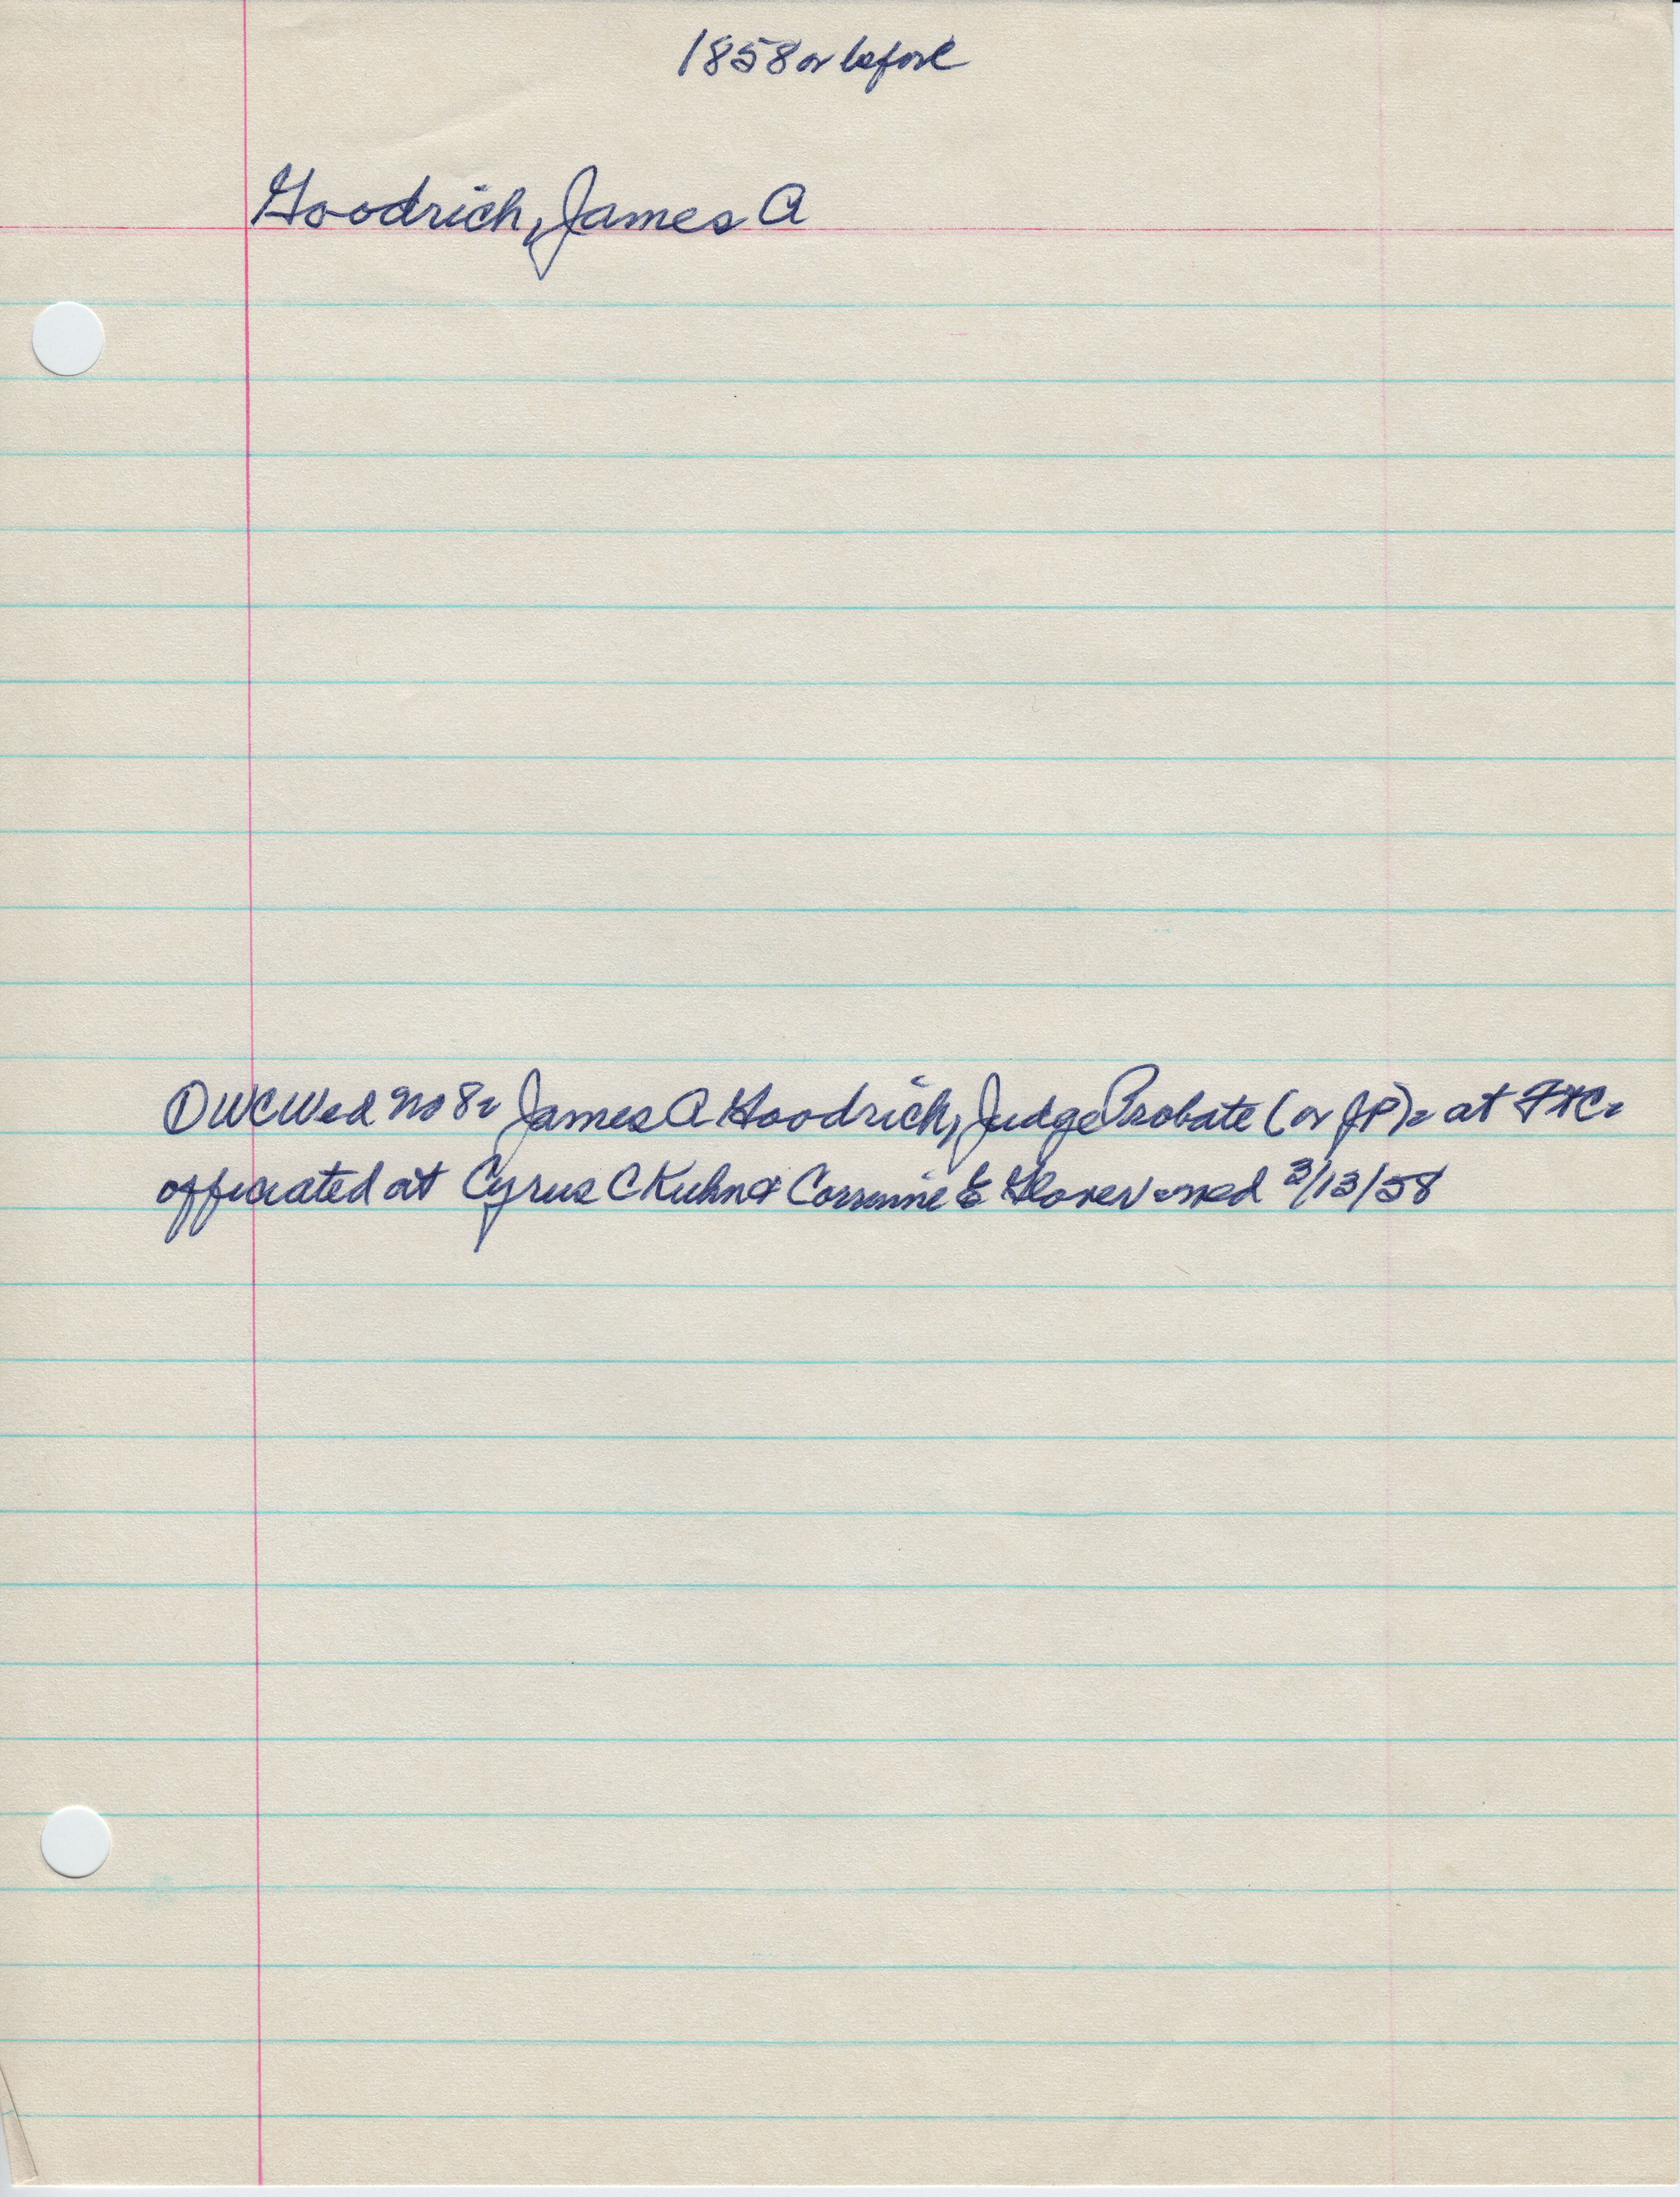 1858 or before
Goodrich, James A
DWCWed No 8= James A Goodrich, Judge Probate (or JP)= at Ft C=
officiated at Cyrus C Kuhn & Corrinne E Glover = med 3/13/58